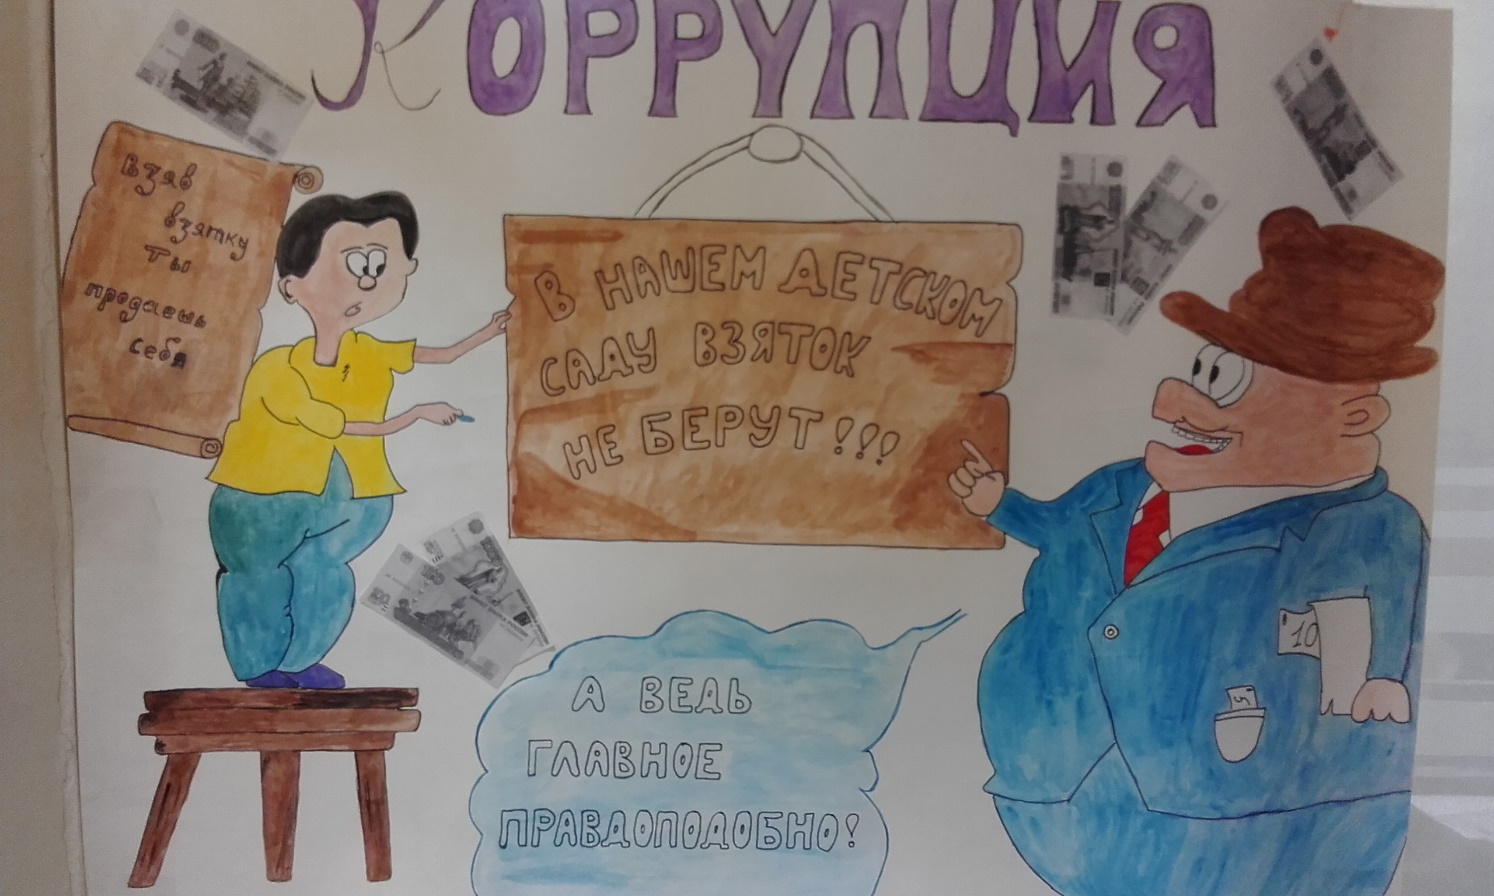 КОРРУПЦИЯ
Взяв
взятку
ты
продаешь
себя
В НАШЕМ ДЕТСКОМ
САДУ ВЗЯТОК
НЕ БЕРУТ!!!
А ВЕДЬ
ГЛАВНОЕ
ПРАВДОПОДОБНО!
10
5